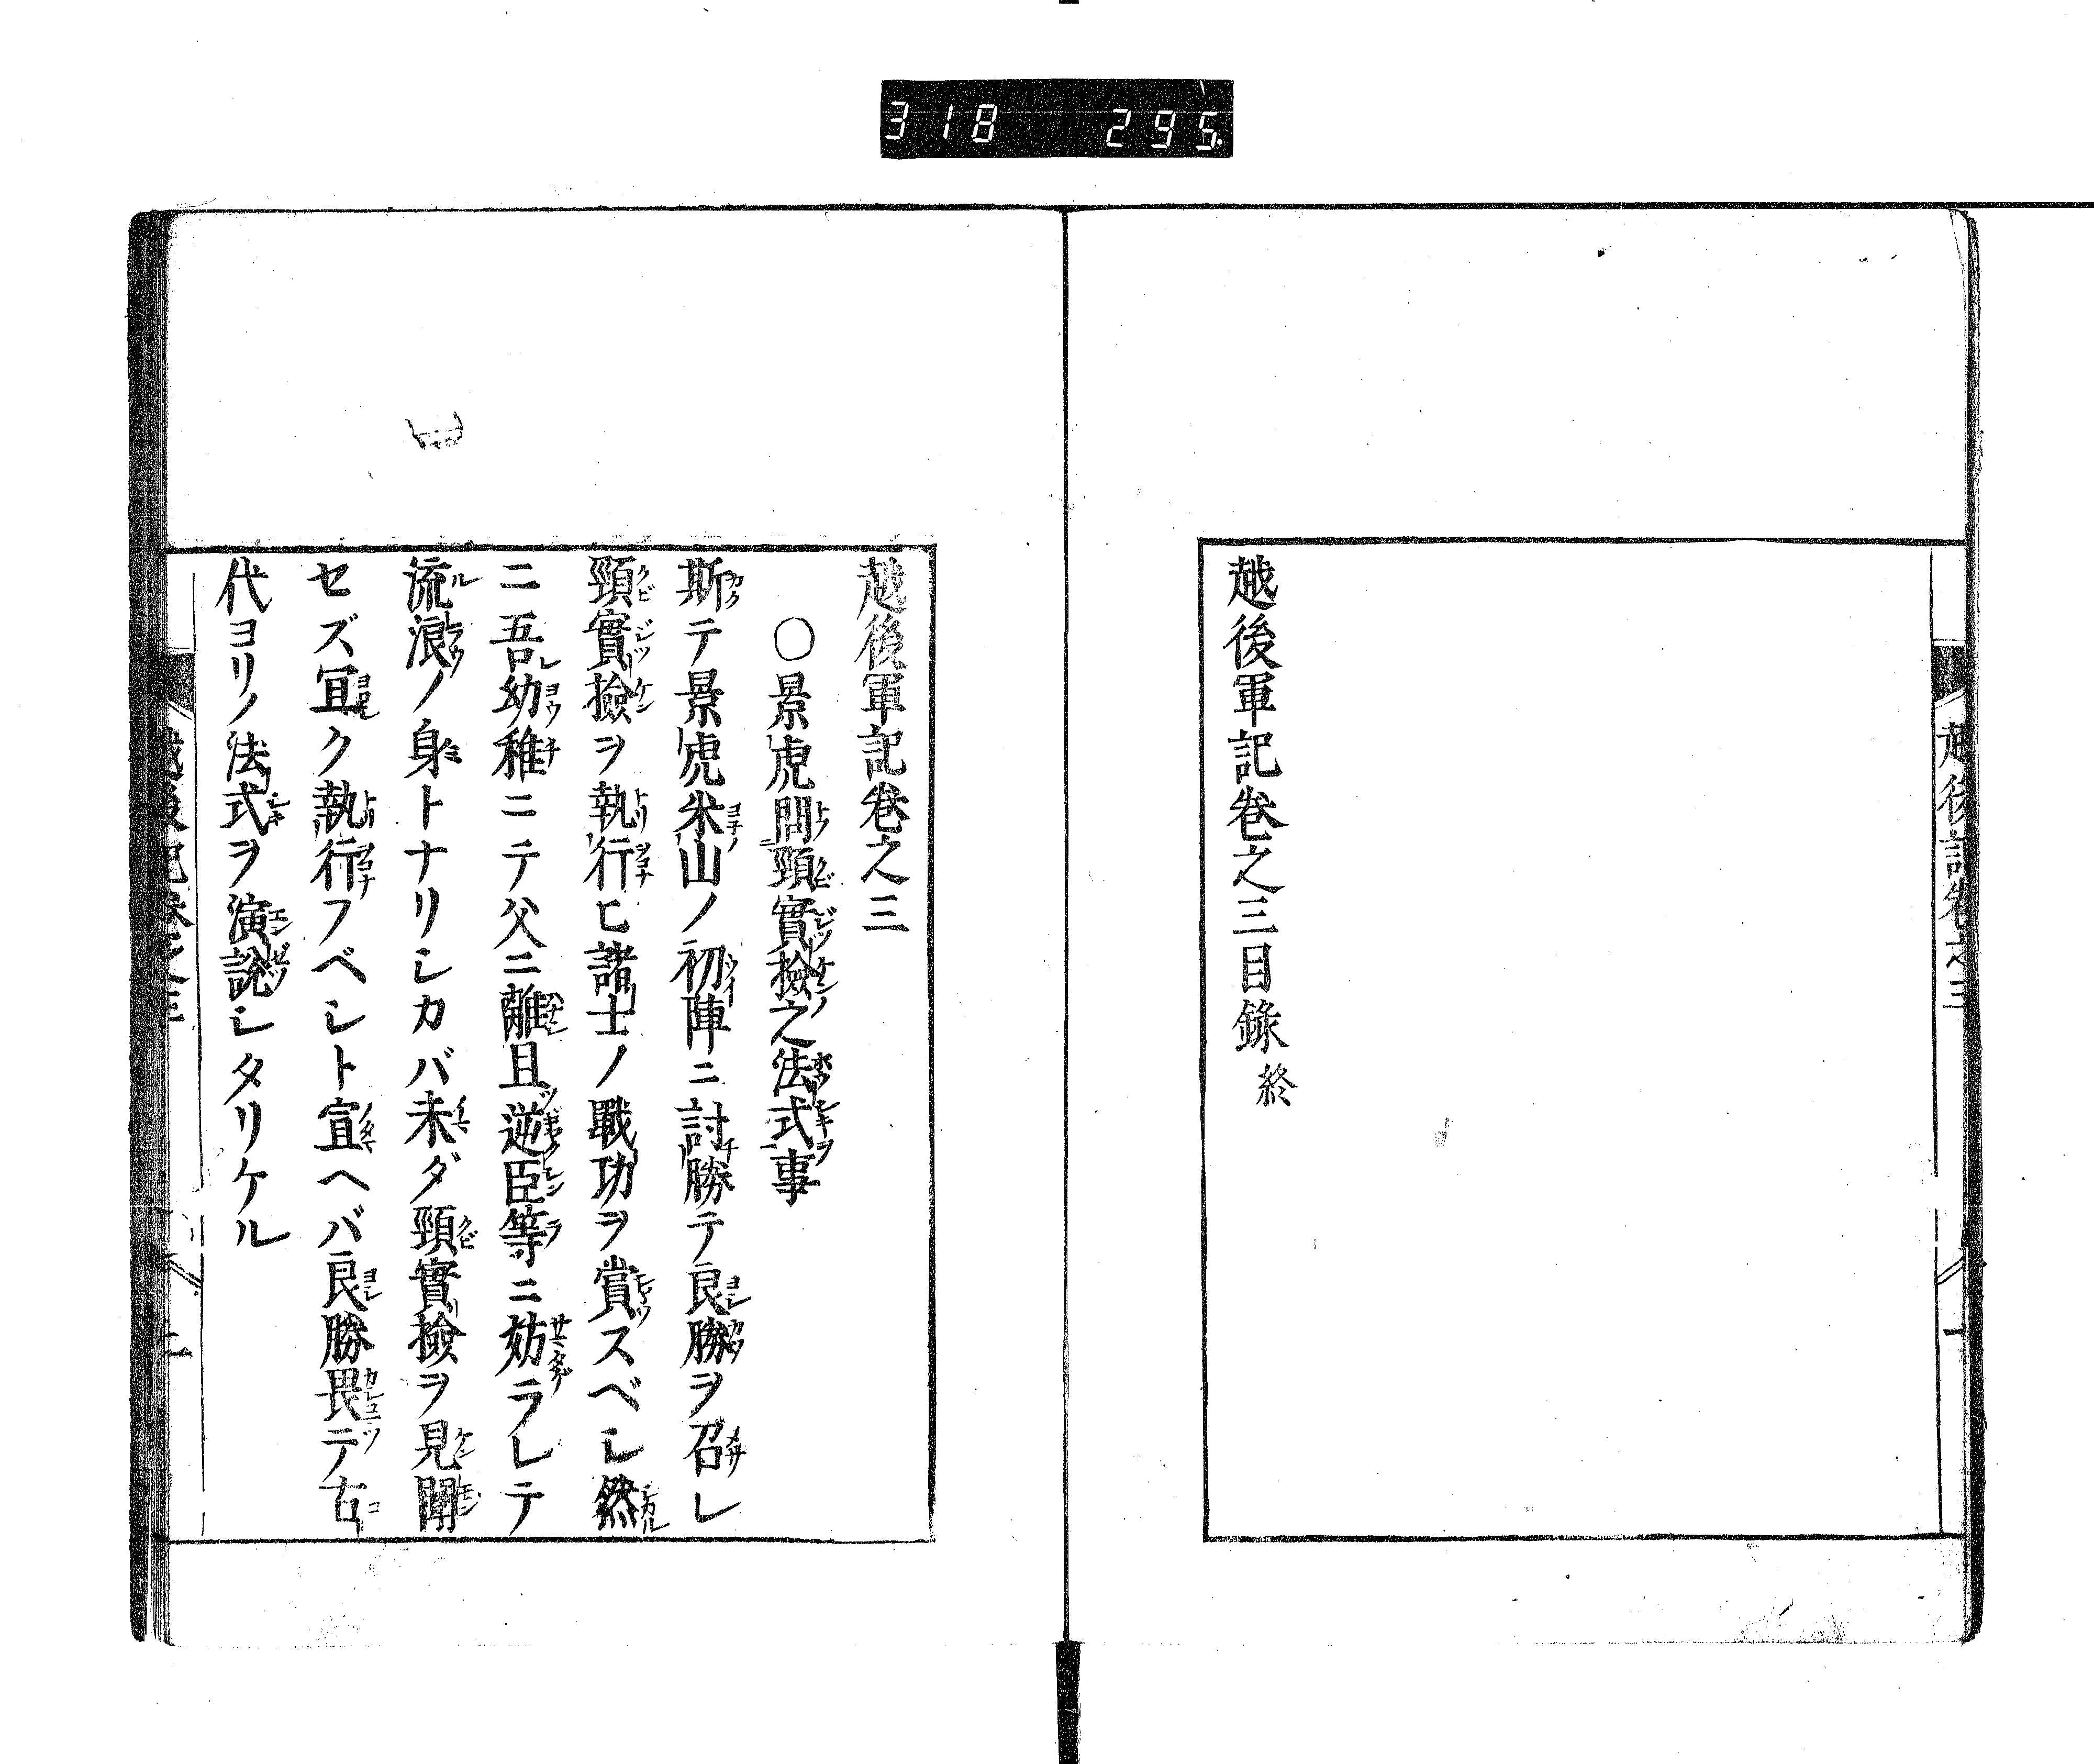 318 295
越後記卷之三
一
越後軍記卷之三目錄終
越後軍記卷之三
○景虎問頸實撿之法式事
斯テ景虎米山ノ初陣ニ討勝テ良勝ヲ召レ
頸實撿ヲ執行ヒ諸士ノ戰功ヲ賞スベシ然
ニ吾幼稚ニテ父ニ離且逆臣等ニ妨ラレテ
流浪ノ身トナリシカバ未ダ頸實撿ヲ見聞
セズ宜ク執行フベシト宣ヘバ良勝畏テ古
代ヨリノ法式ヲ演說シタリケル
越後記卷之三
二